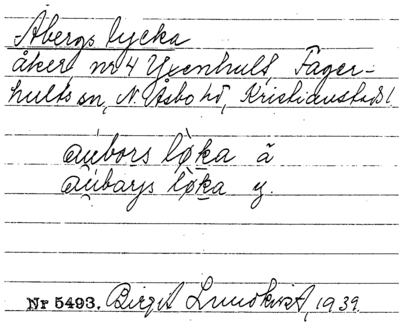 Åbergs lycka
åker, nr 4 Yxenhult, Fager-
hults sn, N. Åsbo hd, Kristianstads l
aubors lo̱ka ä
aubarjs lo̱ka y.
Nr 5493. Birgit Lundkvist, 1939.